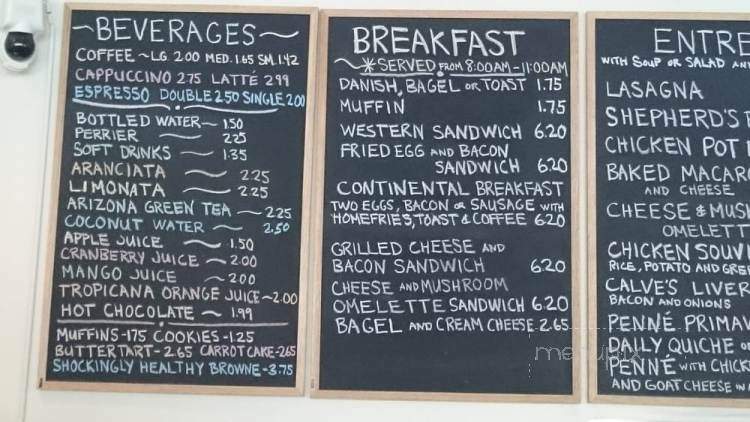 BEVERAGES
COFFEE ~ LG. 2.00 MED. 1.65 SM. 1.42
CAPPUCCINO 2.75 LATTÉ 2.99
ESPRESSO DOUBLE 2.50 SINGLE 2.00
BOTTLED WATER 1.50
PERRIER 2.25
SOFT DRINKS 1.35
ARANCIATA 2.25
LIMONATA 2.25
ARIZONA GREEN TEA 2.25
COCONUT WATER 2.50
APPLE JUICE 1.50
CRANBERRY JUICE 2.00
MANGO JUICE 2.00
TROPICANA ORANGE JUICE ~ 2.00
HOT CHOCOLATE ~ 1.99
MUFFINS - 1.75 COOKIES - 1.25
BUTTERTART - 2.65 CARROT CAKE - 2.65
SHOCKINGLY HEALTHY BROWNE - 3.75
BREAKFAST
* SERVED FROM 8:00AM - 11:00AM
DANISH, BAGEL OR TOAST 1.75
MUFFIN 1.75
WESTERN SANDWICH 6.20
FRIED EGG AND BACON
SANDWICH 6.20
CONTINENTAL BREAKFAST
TWO EGGS, BACON OR SAUSAGE WITH
HOMEFRIES, TOAST & COFFEE 6.20
GRILLED CHEESE AND
BACON SANDWICH 6.20
CHEESE AND MUSHROOM
OMELETTE SANDWICH 6.20
BAGEL AND CREAM CHEESE 2.65
ENTRE
WITH SOUP OR SALAD AN
LASAGNA
SHEPHERD'S
CHICKEN POT
BAKED MACAR
AND CHEESE
CHEESE & MUS
OMELETT
CHICKEN SOUV
RICE, POTATO AND GRE
CALVE'S LIVER
BACON AND ONIONS
PENNÉ PRIMA
DAILY QUICHE
PENNÉ WITH CHICK
AND GOAT CHEESE IN
menupix